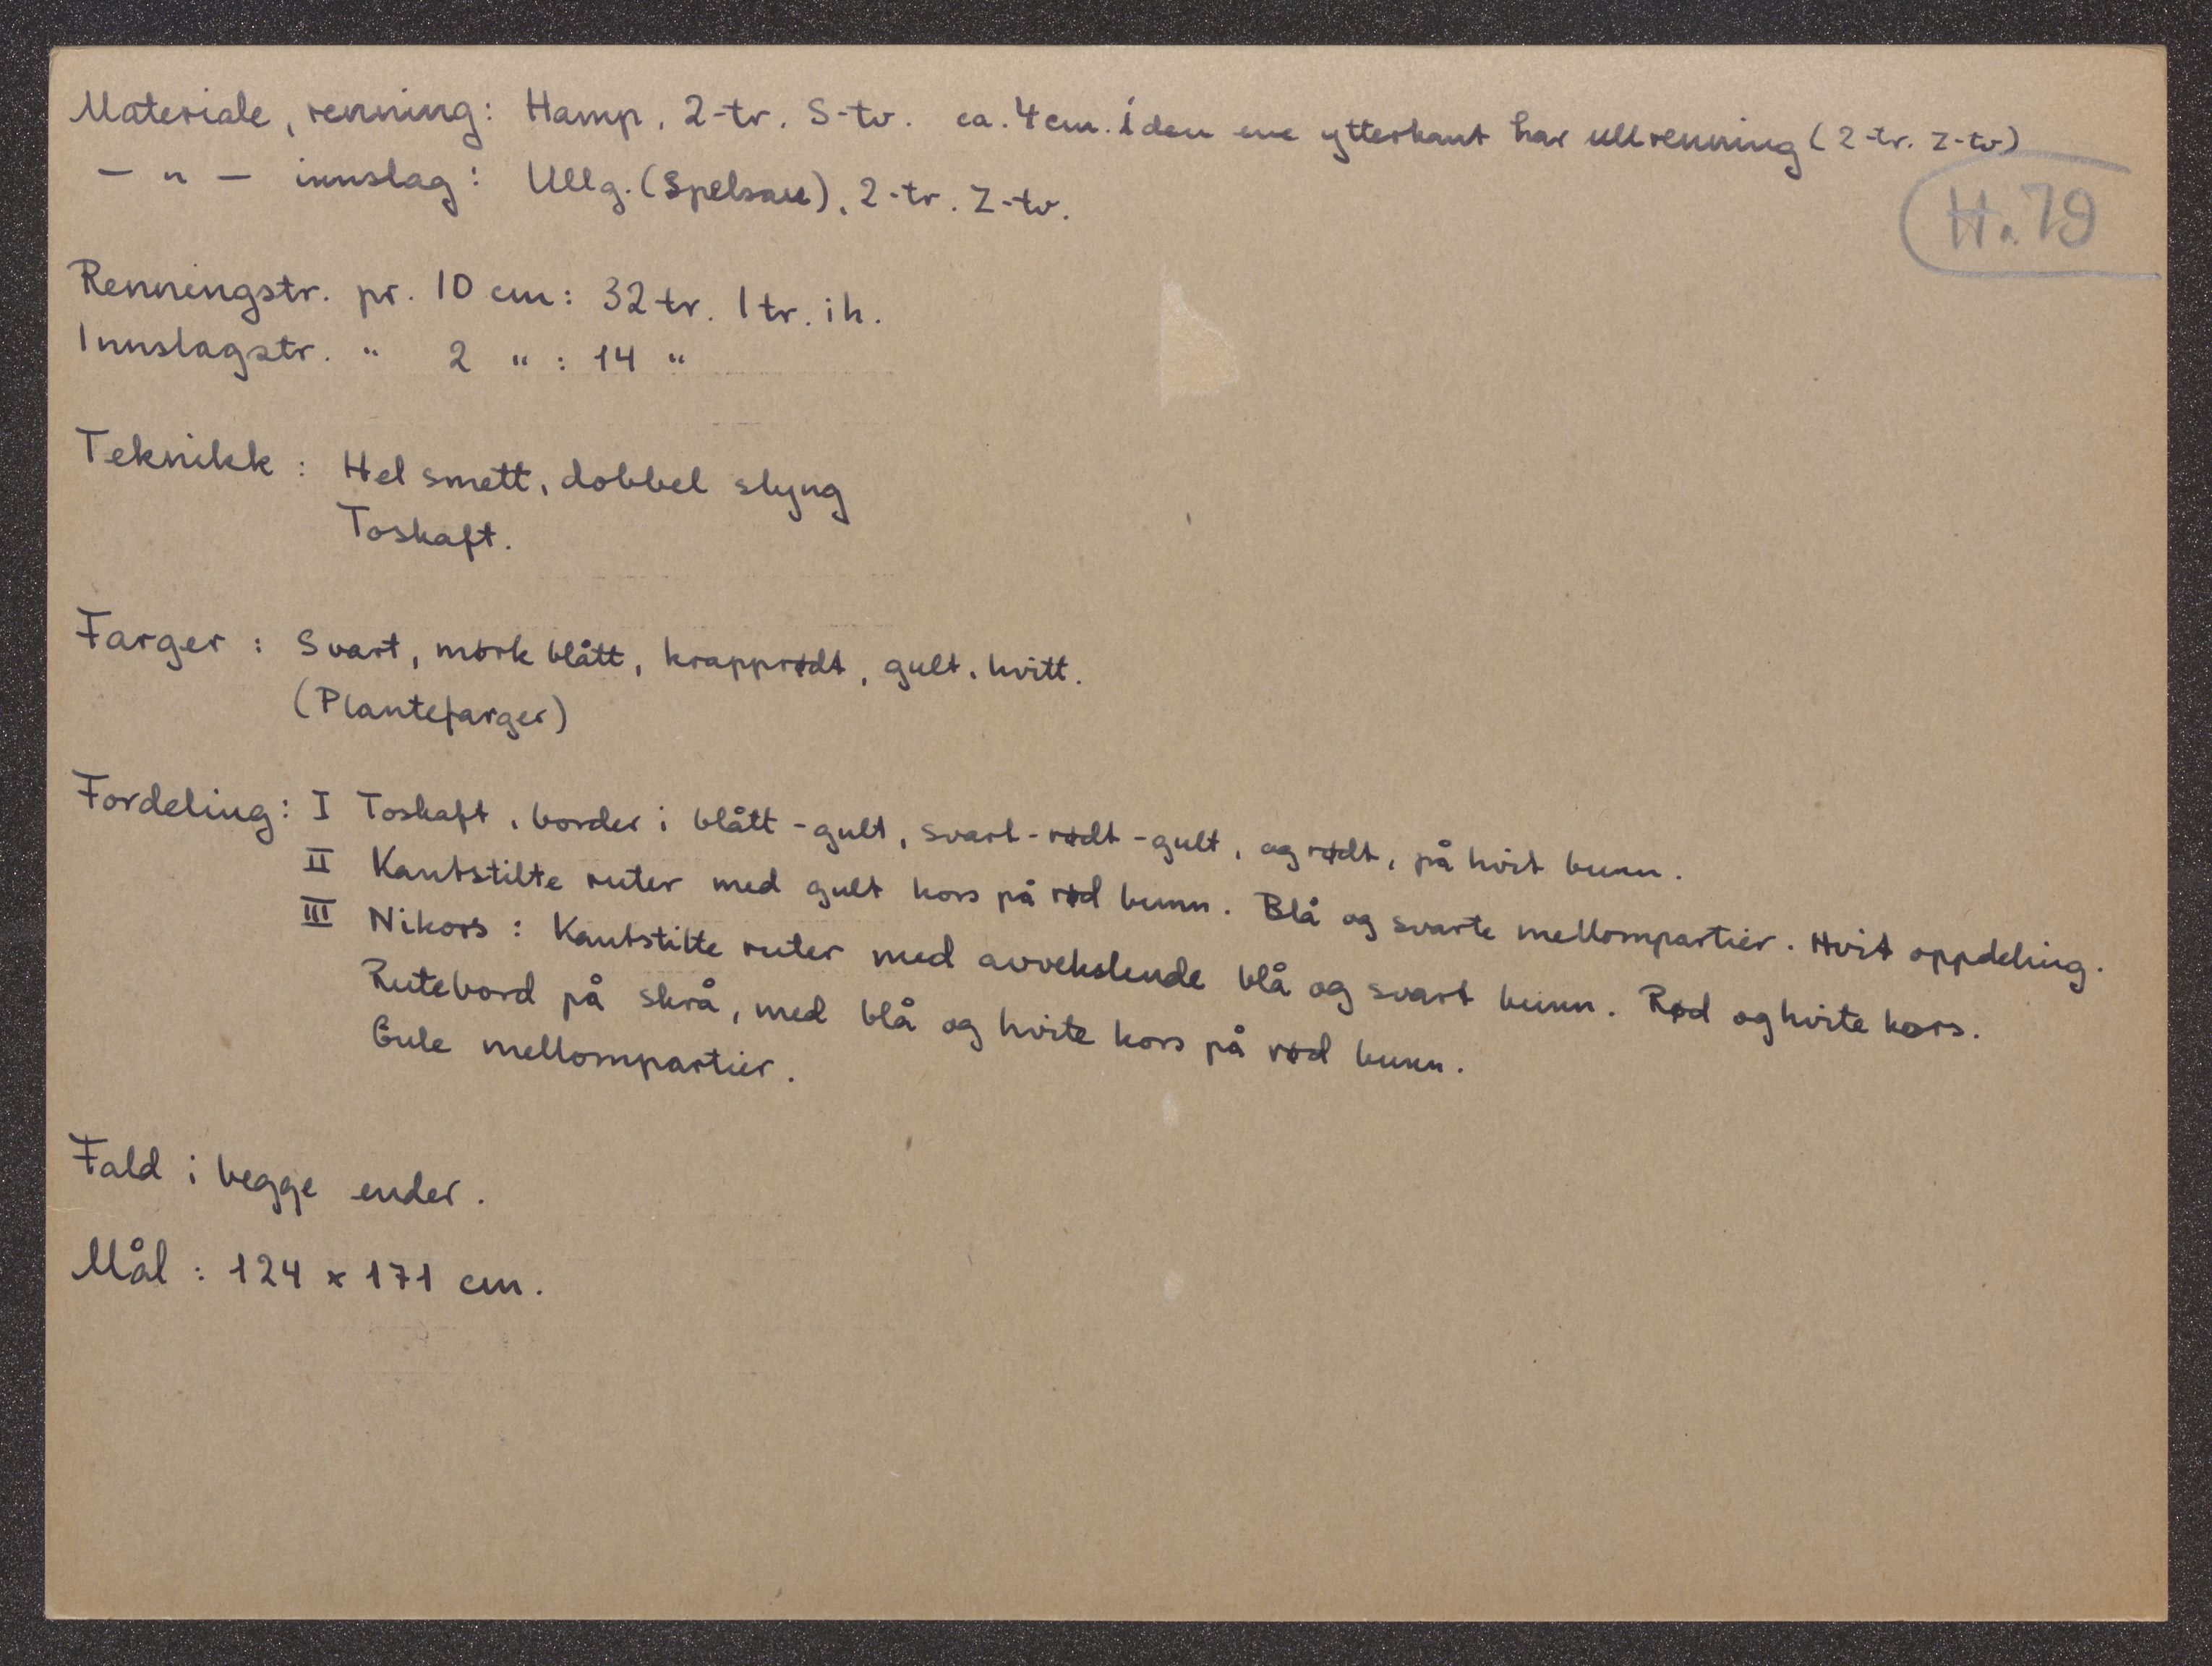 Materiale, renning: Hamp, 2-tr. S-tv. ca. 4 cm. i den ene ytterkant har ullrenning (2-tr. Z-tv)
— " — innslag: Ullg. (Spelsau), 2-tr. Z-tv.
H. 79
Renningstr. pr. 10 cm: 32 tr. 1 tr. i h.
Innslagstr. " 2 " : 14 "
Teknikk: Hel smett, dobbel slyng
Toskaft.
Farger: Svart, mørk blått, krapprødt, gult, hvitt.
(Plantefarger)
Fordeling: I Toskaft, border i blått-gult, svart-rødt-gult, og rødt, på hvit bunn.
II Kantstilte ruter med gult kors på rød bunn. Blå og svarte mellompartier. Hvit oppdeling.
III Nikors: Kantstilte ruter med avvekslende blå og svart bunn. Rød og hvite kors.
Rutebord på skrå, med blå og hvite kors på rød bunn.
Gule mellompartier.
Fald i begge ender.
Mål: 124 x 171 cm.